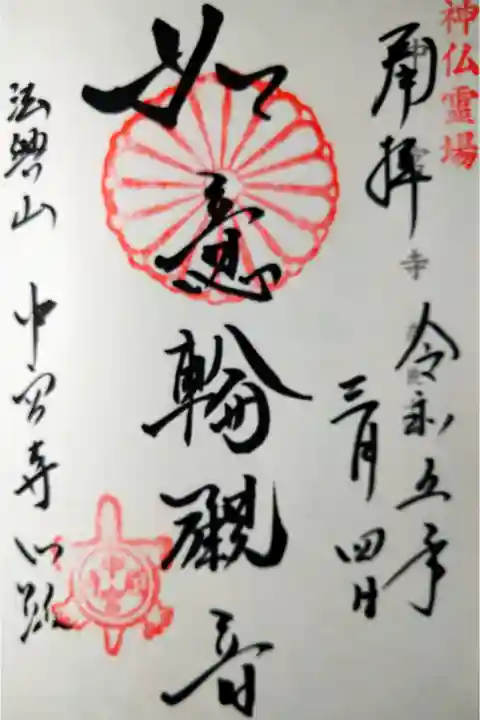 神仏霊場
奉拝
令和五年
三月四日
如意輪観音
法興山 中宮寺門跡
中宮